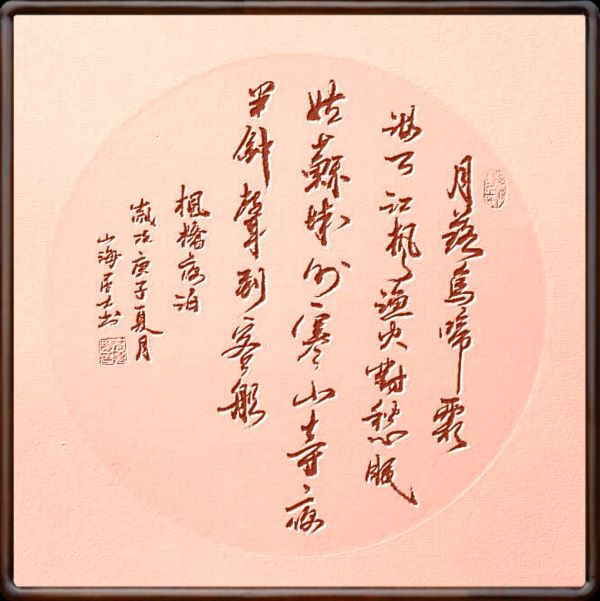 月落烏啼霜
滿天江楓漁火對愁眠
姑蘇城外寒山寺夜
半鐘聲到客船
楓橋夜泊
歲次庚子夏月
山海居士书